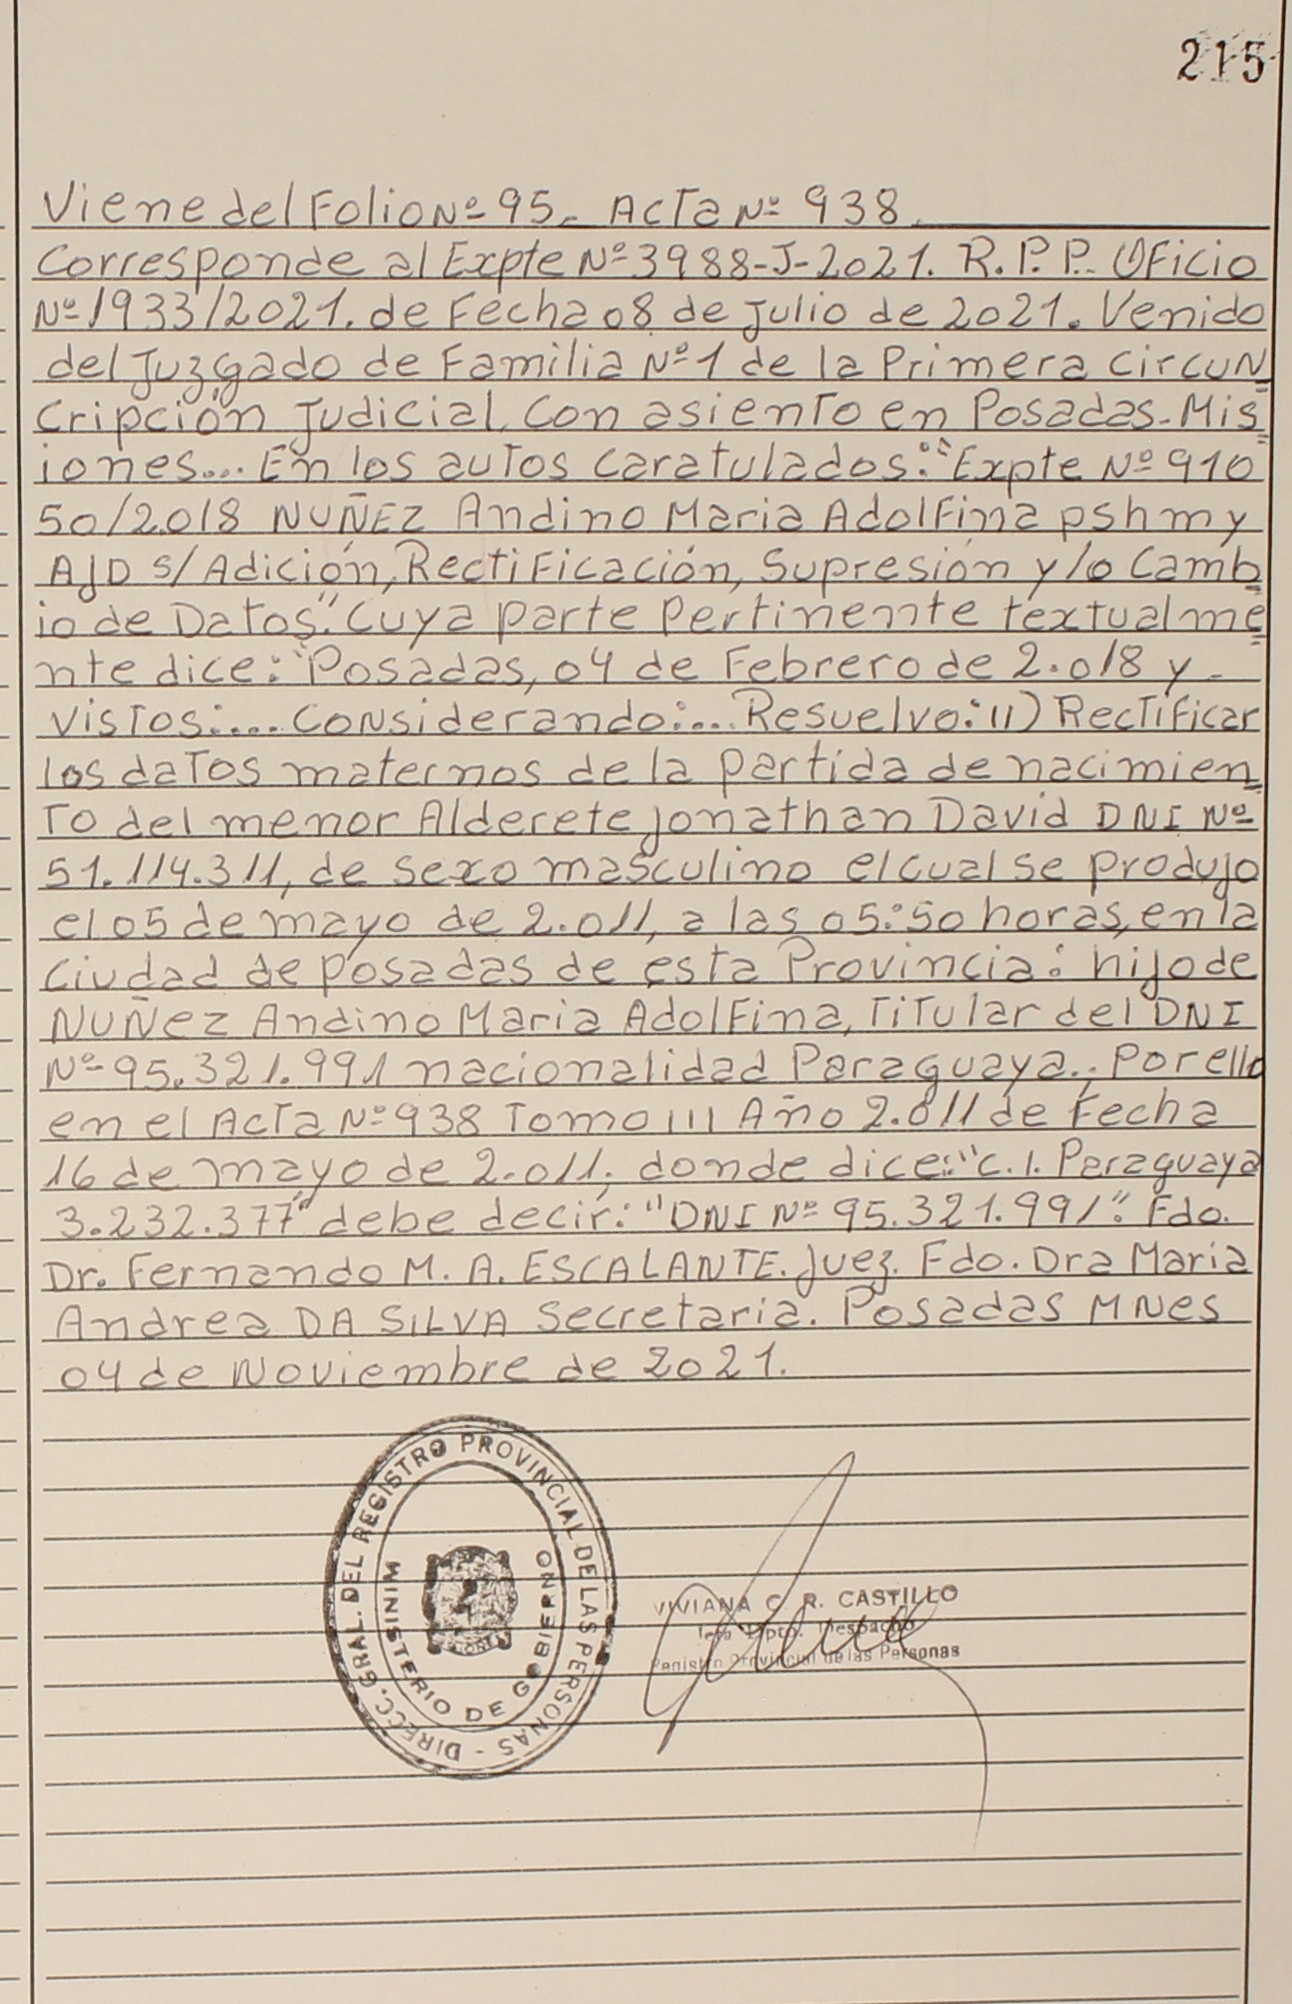 215
Viene del Folio Nº 95. Acta Nº 938.
Corresponde al Expte Nº 3988-J-2021. R.P.P. Oficio
Nº 1933/2021. de Fecha 08 de Julio de 2021. Venido
del Juzgado de Familia Nº 1 de la Primera Circun
cripción Judicial, Con asiento en Posadas-Mis
iones... En los autos caratulados: "Expte Nº 910
50/2.018 NUÑEZ Andino Maria Adolfina pshmy
AJD s/Adición, Rectificación, Supresión y/o Camb
io de Datos". Cuya parte Pertinente textualme
nte dice: "Posadas, 04 de Febrero de 2.018 y
vistos:.... Considerando:... Resuelvo: 11) Rectificar
los datos maternos de la partida de nacimien
to del menor Alderete Jonathan David DNI Nº
51.114.311, de sexo masculino el cual se produjo
el 05 de mayo de 2.011, a las 05:50 horas, en la
ciudad de Posadas de esta Provincia: hijo de
NUÑEZ Andino Maria Adolfina, Titular del DNI
Nº 95.321.991 nacionalidad Paraguaya.; Por ello
en el Acta Nº 938 Tomo III Año 2.011 de Fecha
16 de mayo de 2.011; donde dice: "C.I. Paraguaya
3.232.377" debe decir: "DNI Nº 95.321.991". Fdo.
Dr. Fernando M. A. ESCALANTE. Juez. Fdo. Dra Maria
Andrea DA SILVA Secretaria. Posadas MNes
04 de Noviembre de 2021.
DIRECC. GRAL. DEL REGISTRO PROVINCIAL DE LAS PERSONAS -
MINISTERIO DE GOBIERNO
VIVIANA C. R. CASTILLO
Dpto. Despacho
Registro Provincial de las Personas